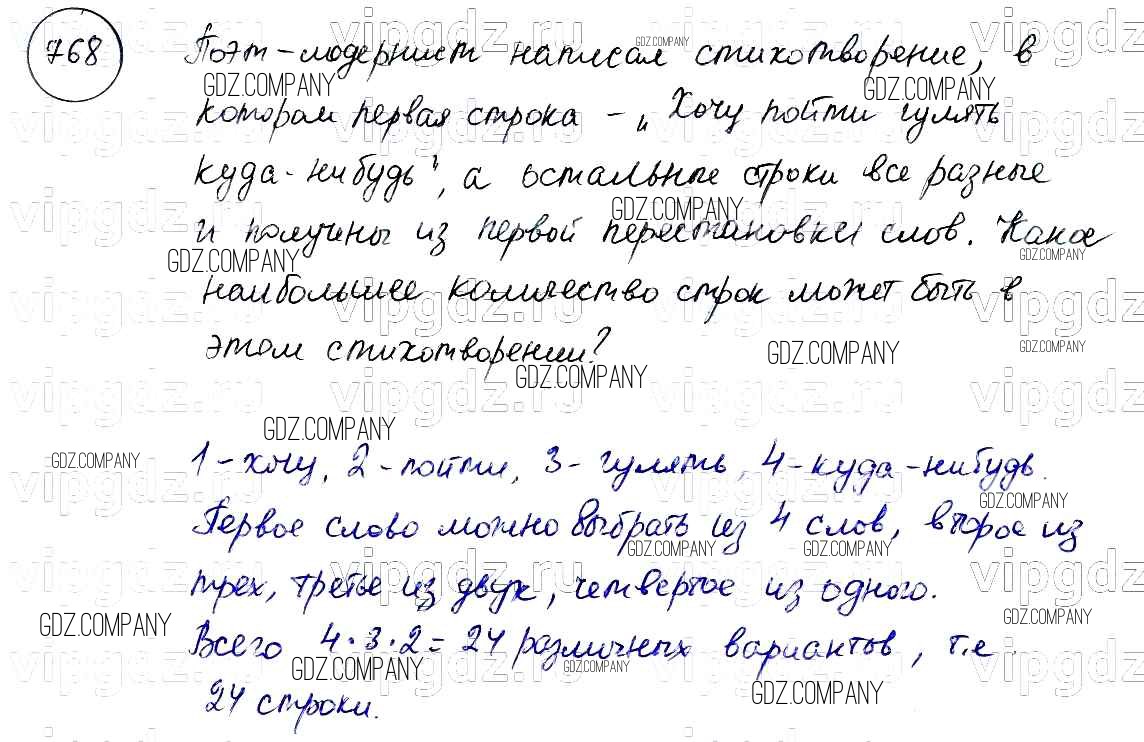 768 Поэт-модернист написал стихотворение, в
котором первая строка - „Хочу пойти гулять
куда-нибудь", а остальные строки все разные
и получены из первой перестановки слов. Какое
наибольшее количество строк может быть в
этом стихотворении?
1-хочу, 2-пойти, 3-гулять, 4-куда-нибудь.
Первое слово можно выбрать из 4 слов, второе из
трех, третье из двух, четвертое из одного.
Всего 4·3·2=24 различных вариантов, т.е
24 строки.
vipgdz.ru
GDZ.COMPANY